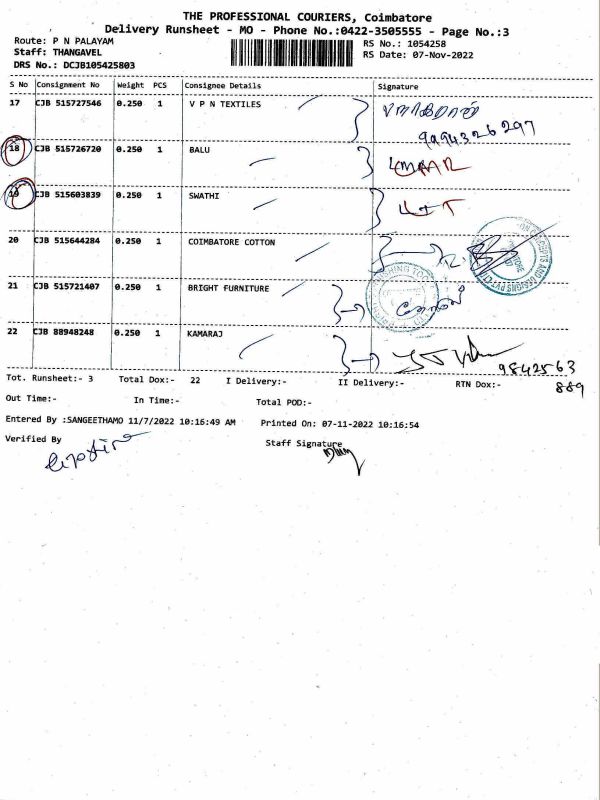 THE PROFESSIONAL COURIERS, Coimbatore
Delivery Runsheet - MO - Phone No.:0422-3505555 - Page No.:3
Route: P N PALAYAM
Staff: THANGAVEL
DRS No.: DCJB105425803
RS No.: 1054258
RS Date: 07-Nov-2022
S No Consignment No Weight PCS Consignee Details Signature
17 CJB 515727546 0.250 1 V P N TEXTILES
9994326297
18 CJB 515726720 0.250 1 BALU
19 CJB 515603839 0.250 1 SWATHI
20 CJB 515644284 0.250 1 COIMBATORE COTTON
21 CJB 515721407 0.250 1 BRIGHT FURNITURE
22 CJB 88948248 0.250 1 KAMARAJ
9842563
889
Tot. Runsheet:- 3 Total Dox:- 22 I Delivery:- II Delivery:- RTN Dox:-
Out Time:- In Time:- Total POD:-
Entered By :SANGEETHAMO 11/7/2022 10:16:49 AM Printed On: 07-11-2022 10:16:54
Verified By Staff Signature